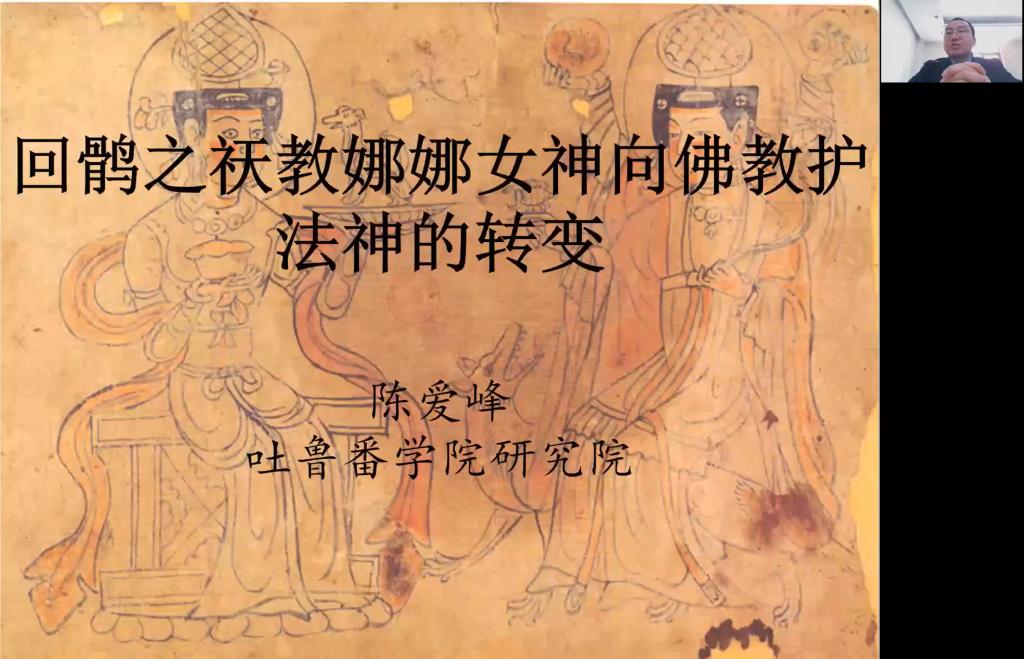 回鹘之祆教娜娜女神向佛教护
法神的转变
陈爱峰
吐鲁番学院研究院